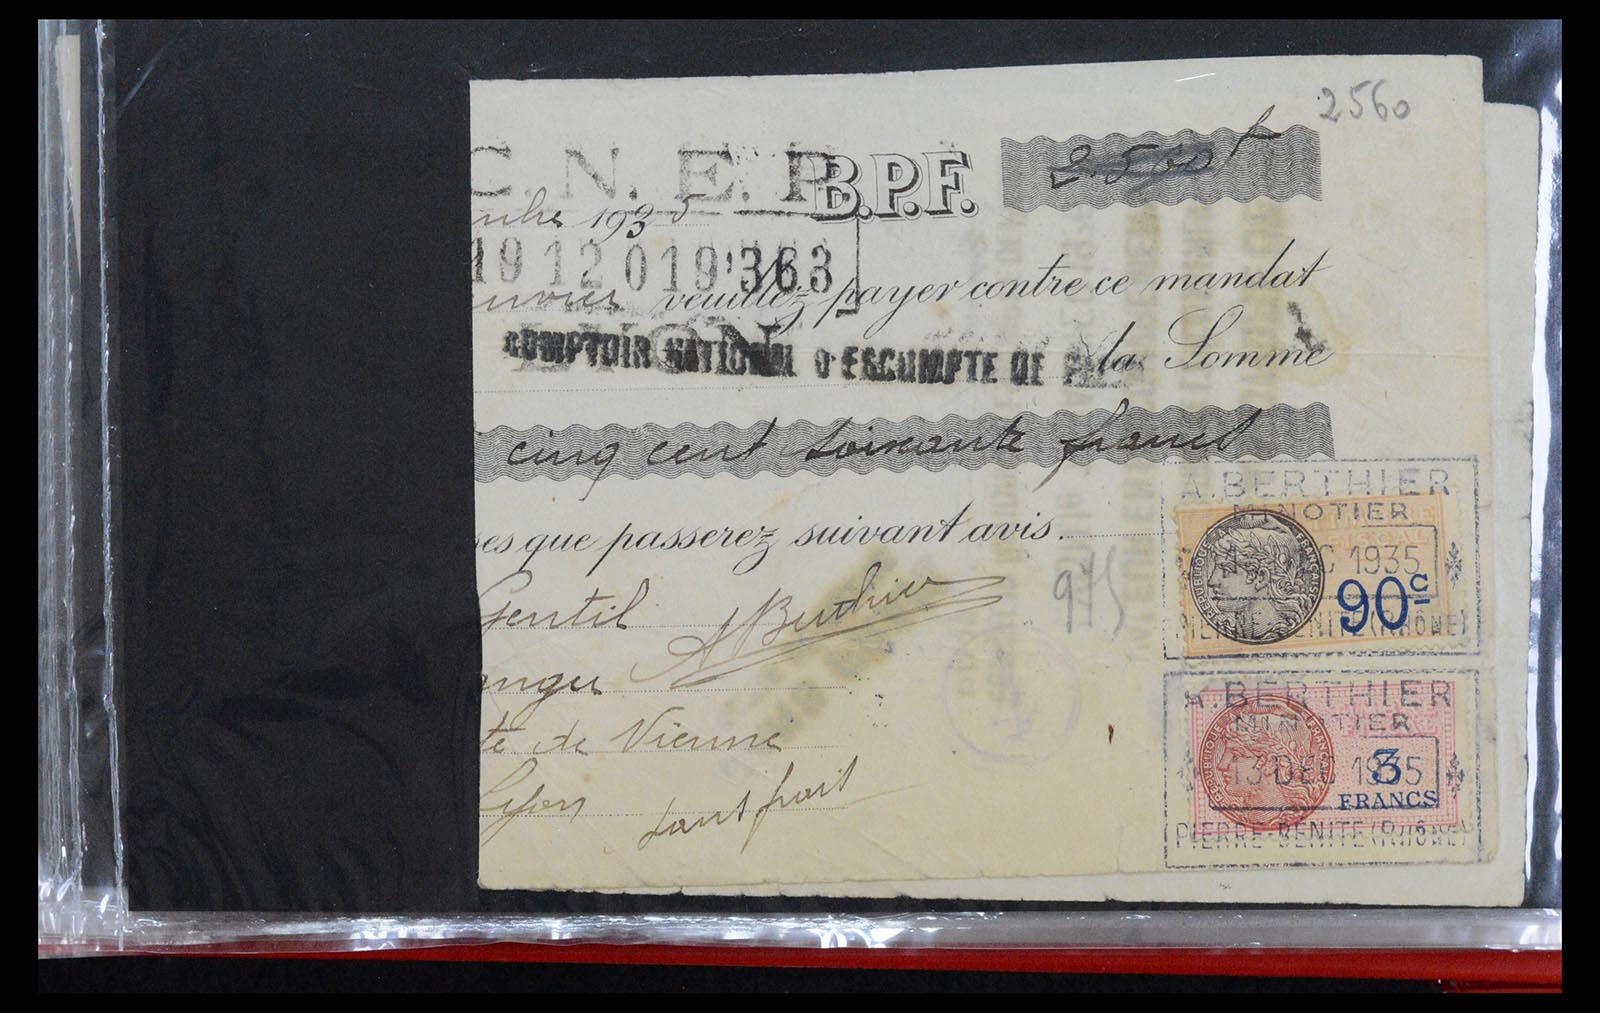 2560
C. N. E. P.
B.P.F. 2.560 f
embre 1935
19 12 019363
veuillez payer contre ce mandat
LYON
COMPTOIR NATIONAL D'ESCOMPTE DE PARIS
la Somme
cinq cent soixante francs
ses que passerez suivant avis.
Gentil
ABerthier
975
te de Vienne
Lyon
sans frais
A. BERTHIER
MINOTIER
DEC 1935
PIERRE-BENITE (RHÔNE)
REPUBLIQUE FRANÇAISE
FISCAL
90c
A. BERTHIER
MINOTIER
13 DEC 1935
PIERRE-BENITE (RHÔNE)
REPUBLIQUE FRANÇAISE
3
FRANCS